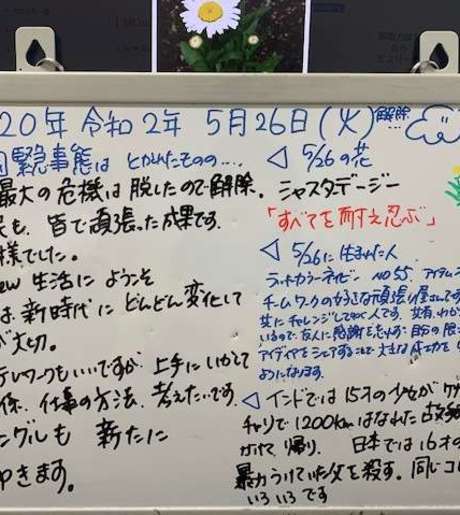 20年 令和2年 5月26日(火)解除...
緊急事態は とかれたものの....
最大の危機は脱したので解除.
も、皆で頑張った成果です.
様でした.
ew 生活に ようこそ
は 新時代に どんどん 変化して
が大切.
テレワークもいいですが、上手に いかして
係、仕事の方法、考えたいです.
ングルも 新たに
きます.
◁ 5/26 の花
シャスタデージー
「すべてを耐え忍ぶ」
◁ 5/26に 生まれた人
ラッキーカラーネイビー NO 55. アイテム
チームワークの好きな頑張り屋さんです
共にチャレンジして 人です. 共有、
いるので 友人に感謝を忘れず 自分の
アイデアをシェアすることで 大きな 成功を
ようになります.
◁ インドでは 15才の少女が
チャリで 1200kmはなれた 故郷
かけて 帰り. 日本では 16才の
暴力うけていた父を 殺す. 同じコ
いろいろです